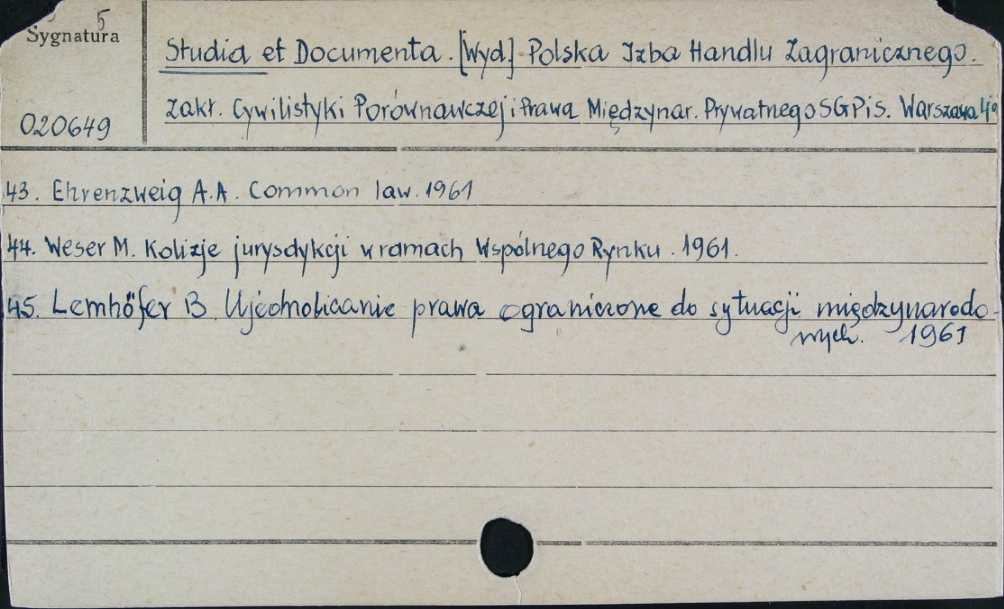 5
Sygnatura
020649
Studia et Documenta. [Wyd] Polska Izba Handlu Zagranicznego.
Zakł. Cywilistyki Porównawczej i Prawa Międzynar. Prywatnego SGPiS. Warszawa
43. Ehrenzweig A.A. Common law. 1961
44. Weser M. Kolizje jurysdykcji w ramach Wspólnego Rynku. 1961.
45. Lemhöfer B Ujednolicanie prawa ograniczone do sytuacji międzynarodo-
wych. 1961